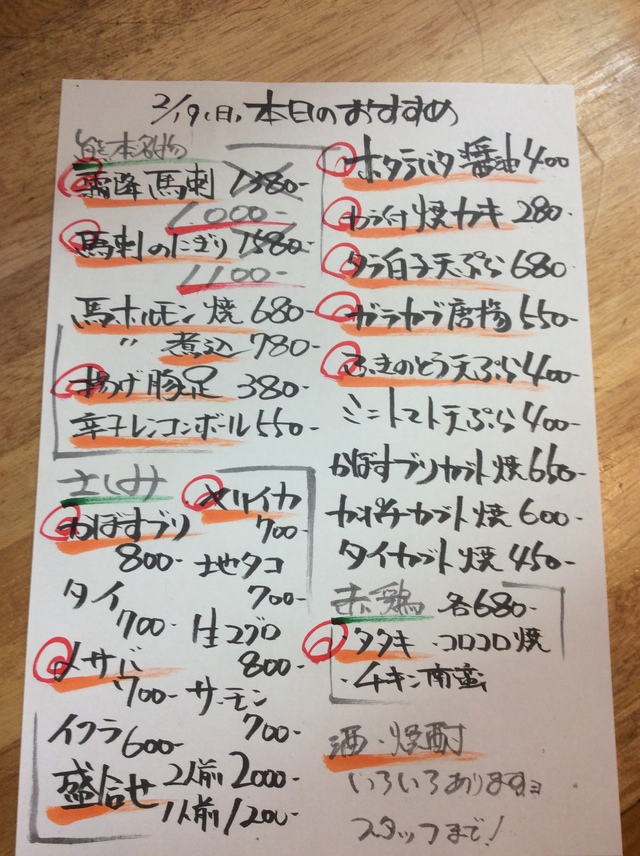 2/19(日)本日のおすすめ
熊本名物
霜降馬刺 1380-
1000-
馬刺のにぎり 1580-
1100-
馬ホルモン焼 680-
〃 煮込 780-
揚げ豚足 380-
辛子レンコンボール 550-
さしみ
かぼすブリ
800-
タイ
700-
〆サバ
700-
イクラ 600-
盛合せ 2人前 2000-
1人前 1200-
メリイカ
700-
地タコ
700-
生マグロ
800-
サーモン
700-
ホタテバタ醤油 400
カラ付焼カキ 280-
タラ白子天ぷら 680
ガラカブ唐揚 550-
ふきのとう天ぷら 400-
ミニトマト天ぷら 400-
かぼすブリカブト焼 650-
カンパチカブト焼 600-
タイカブト焼 450-
赤鶏 各680-
・タタキ ・コロコロ焼
・チキン南蛮
酒・焼酎
いろいろあります
スタッフまで!